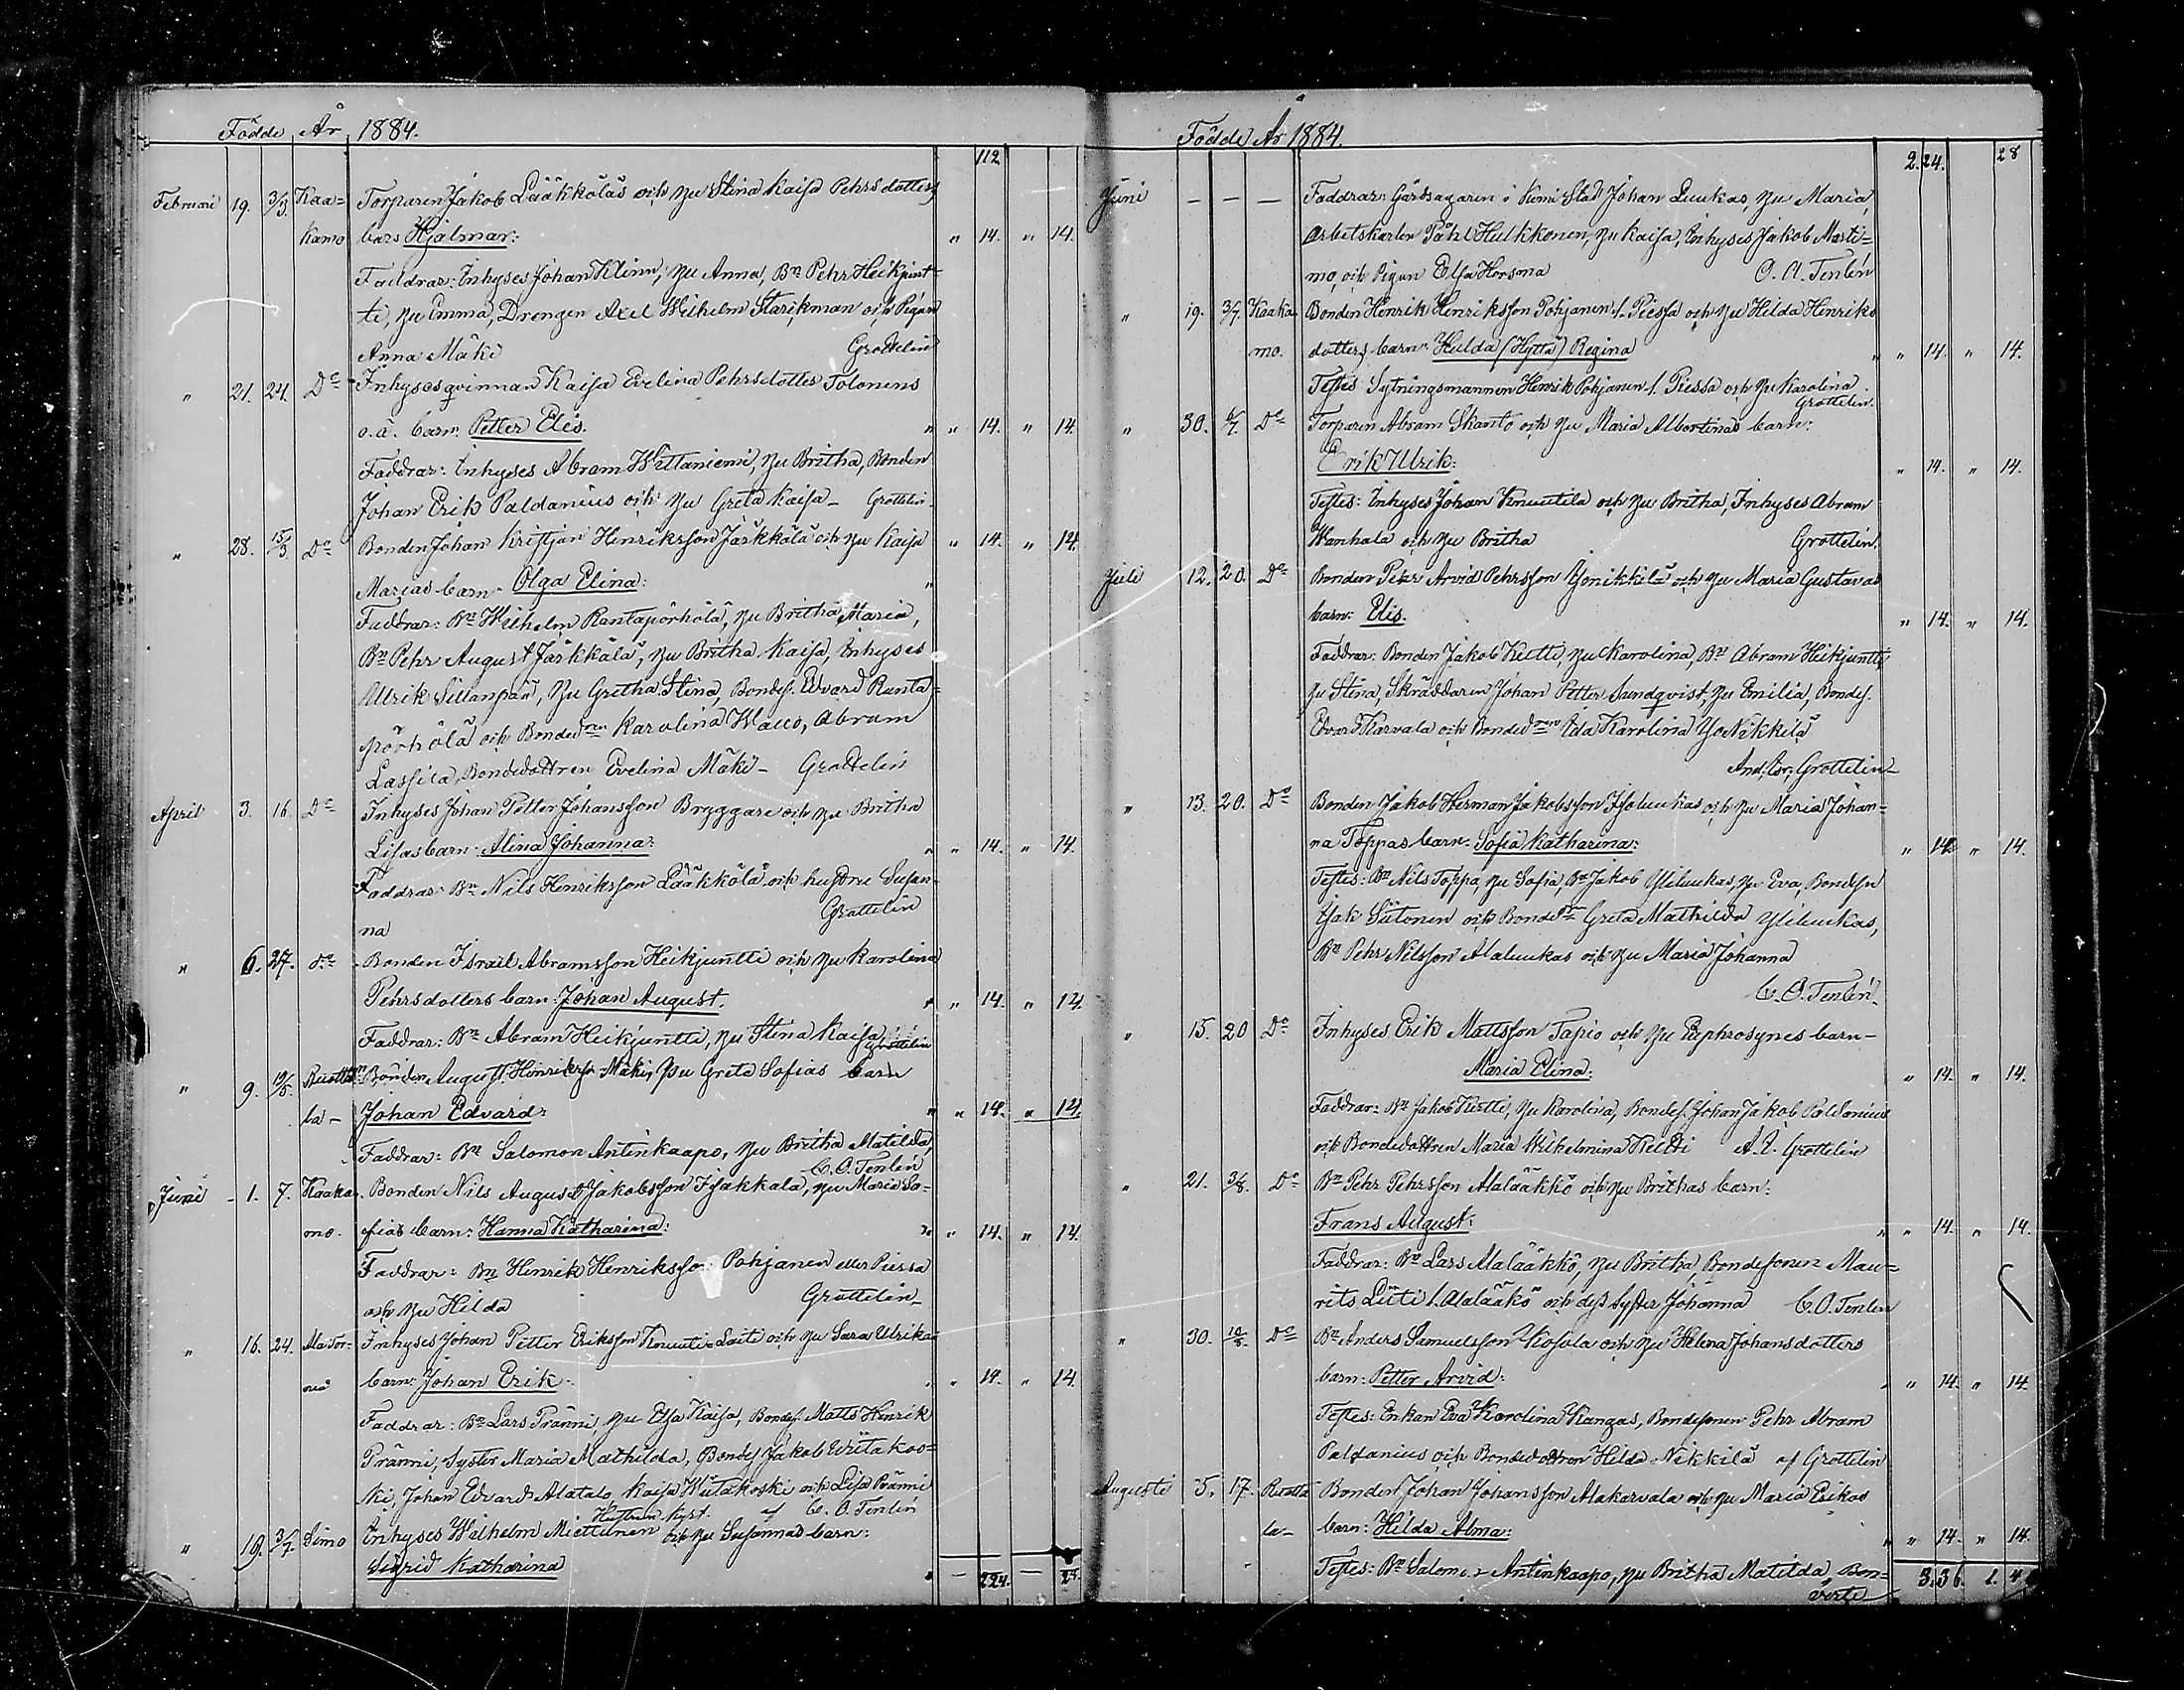 Födde År 1884.
112
Februari 19. 3/3. Kaa= Torparen Jakob Lääkköläs och Hu Stina Kaisa Pehrsdotters
kamo barn Hjalmar: " 14. " 14.
Faddrar: Inhyses Johan Klinn, Hu Anna, Bn Pehr Heikjunt=
ti, Hu Emma, Drengen Axel Wilhelm Starikman och Pigan
Anna Mäki Grottelin
" 21. 24. Do Inhysesqvinnan Kaisa Evelina Pehrsdotter Tolonens
o.ä. barn: Petter Elis. " " 14. " 14.
Faddrar: Inhyses Abram Wittaniemi, Hu Britha, Bonden
Johan Erik Paldanius och Hu Greta Kaisa – Grottelin.
" 28. 15/3 Do Bonden Johan Kristjan Henriksson Järkkälä och Hu Kaisa " 14. " 14.
Marias barn: Olga Elina: "
Faddrar: Bn Wilhelm Rantapörhölä, Hu Britha Maria,
Bn Pehr August Järkkälä, Hu Britha Kaisa, Inhyses
Ulrik Sillanpää, Hu Gretha Stina, Bondes. Edvard Ranta=
pörhölä och Bonded:ren Karolina Wauo, Abram
Lassila, Bondedottren Evelina Mäki – Grottelin
April 3. 16. Do Inhyses Johan Petter Johansson Bryggare och Hu Britha
Lisas barn: Alina Johanna: " " 14. " 14.
Faddrar: Bn Nils Henriksson Lääkkölä och hustru Susan=
na Grottelin
" 6. 27. do Bonden Israil Abramsson Heikjuntti och Hu Karolina
Pehrsdotters barn: Johan August. " " 14. " 14.
Faddrar: Bn Abram Heikjuntti, Hu Stina Kaisa Grottelin
" 9. 10/5. Ruotta= Bonden August Henriksson Mäki, Hu Greta Sofias barn
la – Johan Edvard: " " 14. " 14.
Faddrar: Bn Salomon Antinkaapo, Hu Britha Matilda,
C. O. Tenlén
Juni – 1. 7. Kaaka= Bonden Nils August Jakobsson Isakkala, Hu Maria So=
mo. fias barn: Hanna Katharina: " " 14. " 14.
Faddrar: Bn Henrik Henriksson Pohjanen eller Piessa
och Hu Hilda Grottelin –
" 16. 24. Ala Tor= Inhyses Johan Petter Eriksson Knuuti Laiti och Hu Sara Ulrikas
neå barn: Johan Erik – " " 14. " 14.
Faddrar: Bn Lars Pränni, Hu Elsa Kaisa, Bondes. Matts Henrik
Pränni, Syster Maria Mathilda, Bondes Jakob Wiitakos=
ki, Johan Edvard Alatalo, Kaisa Wiitakoski och Lisa Pränni
af C. O. Tenlén
" 19. 3/7. Simo Inhyses Wilhelm Miettunen och Hu Susannas barn:
Sigrid Katharina " – 224. – 28.
Födde År 1884.
2.24. 28
Juni – – – Faddrar: Gårdsägaren i Kemi Stad Johan Luukas, Hu Maria,
Arbetskarlen Påhl Hulkkonen, Hu Kaisa, Inhyses Jakob Marti=
mo, och Pigan Elsa Horsma C. O. Tenlén
" 19. 3/7. Kaaka= Bonden Henrik Henriksson Pohjanen l. Piessa och Hu Hilda Henriks
mo. dotters barn: Hulda (Hyttä) Regina " " 14. " 14.
Testes: Sytningsmannen Henrik Pohjanen l. Piessa och Hu Karolina.
Grottelin.
" 30. 6/7. Do Torparen Abram Skanto och Hu Maria Albertinas barn:
Erik Ulrik: " 14. " 14.
Testes: Inhyses Johan Knuutila och Hu Britha, Inhyses Abram
Wanhala och Hu Britha Grottelin.
Juli 12. 20. Do Bonden Pehr Arvid Pehrsson Yonikkilä och Hu Maria Gustavas
barn: Elis. " 14. " 14.
Faddrar: Bonden Jakob Ketti, Hu Karolina, Bn Abram Heikjuntti,
Hu Stina, Skräddaren Johan Petter Sundqvist, Hu Emilia, Bondes.
Edvard Karvala och Bonded:ren Ida Karolina Yo Nikkilä
And. Isr. Grottelin –
" 13. 20. Do Bonden Jakob Herman Jakobsson Isoluukas och Hu Maria Johan=
na Toppas barn: Sofia Katharina: " 14. " 14.
Testes: Bn Nils Toppa, Hu Sofia, Bn Jakob Yliluukas, Hu Eva, Bondesn
Isak Siitonen och Greta Mathilda Yliluukas,
Bn Pehr Nilsson Alaluukas och Hu Maria Johanna
C. O. Tenlén –
" 15. 20 Do Inhyses Erik Mattsson Tapio och Hu Euphrosynes barn –
Maria Elina: " 14. " 14.
Faddrar: Bn Jakob Ketti, Hu Karolina, Bondes. Johan Jakob Paldanius
och Bondedottren Maria Wilhelmina Ketti A. I. Grottelin
" 21. 3/8. Do Bn Pehr Pehrsson Alalääkkö och Hu Brithas barn:
Frans August: " " 14. " 14.
Faddrar: Bn Lars Alalääkkö, Hu Britha, Bondesonen Mau=
rits Liiti l. Alalääkö och dess Syster Johanna C. O. Tenlén
" 30. 10/8. Do Bn Anders Samuelsson Kosula och Hu Helena Johansdotters
barn: Petter Arvid: " " 14. " 14.
Testes: Enkan Eva Karolina Kangas, Bondesonen Pehr Abram
Paldanius och Bondedottren Hilda Nikkilä af Grottelin
Augusti 5. 17. Ruotta Bonden Johan Johansson Alakarvala och Hu Maria Erikas
la – barn: Hilda Alma: " " 14. " 14.
Testes: Bn Salomon Antinkaapo, Hu Britha Matilda, Bon= 3.36. 1.4
verte